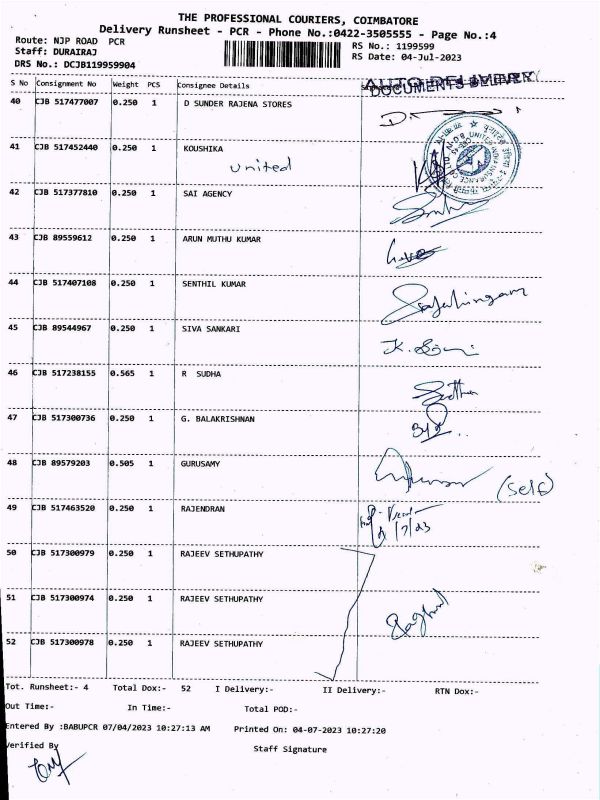 THE PROFESSIONAL COURIERS, COIMBATORE
Delivery Runsheet - PCR - Phone No.:0422-3505555 - Page No.:4
Route: NJP ROAD PCR
Staff: DURAIRAJ
DRS No.: DCJB119959904
RS No.: 1199599
RS Date: 04-Jul-2023
S No Consignment No Weight PCS Consignee Details
DOCUMENTS DELIVERY
40 CJB 517477007 0.250 1 D SUNDER RAJENA STORES
41 CJB 517452440 0.250 1 KOUSHIKA
United
42 CJB 517377810 0.250 1 SAI AGENCY
43 CJB 89559612 0.250 1 ARUN MUTHU KUMAR
44 CJB 517407108 0.250 1 SENTHIL KUMAR
45 CJB 89544967 0.250 1 SIVA SANKARI
46 CJB 517238155 0.565 1 R SUDHA
47 CJB 517300736 0.250 1 G. BALAKRISHNAN
48 CJB 89579203 0.505 1 GURUSAMY
(Self)
49 CJB 517463520 0.250 1 RAJENDRAN
50 CJB 517300979 0.250 1 RAJEEV SETHUPATHY
51 CJB 517300974 0.250 1 RAJEEV SETHUPATHY
52 CJB 517300978 0.250 1 RAJEEV SETHUPATHY
Tot. Runsheet:- 4 Total Dox:- 52 I Delivery:- II Delivery:- RTN Dox:-
Out Time:- In Time:- Total POD:-
Entered By :BABUPCR 07/04/2023 10:27:13 AM Printed On: 04-07-2023 10:27:20
Verified By
Staff Signature